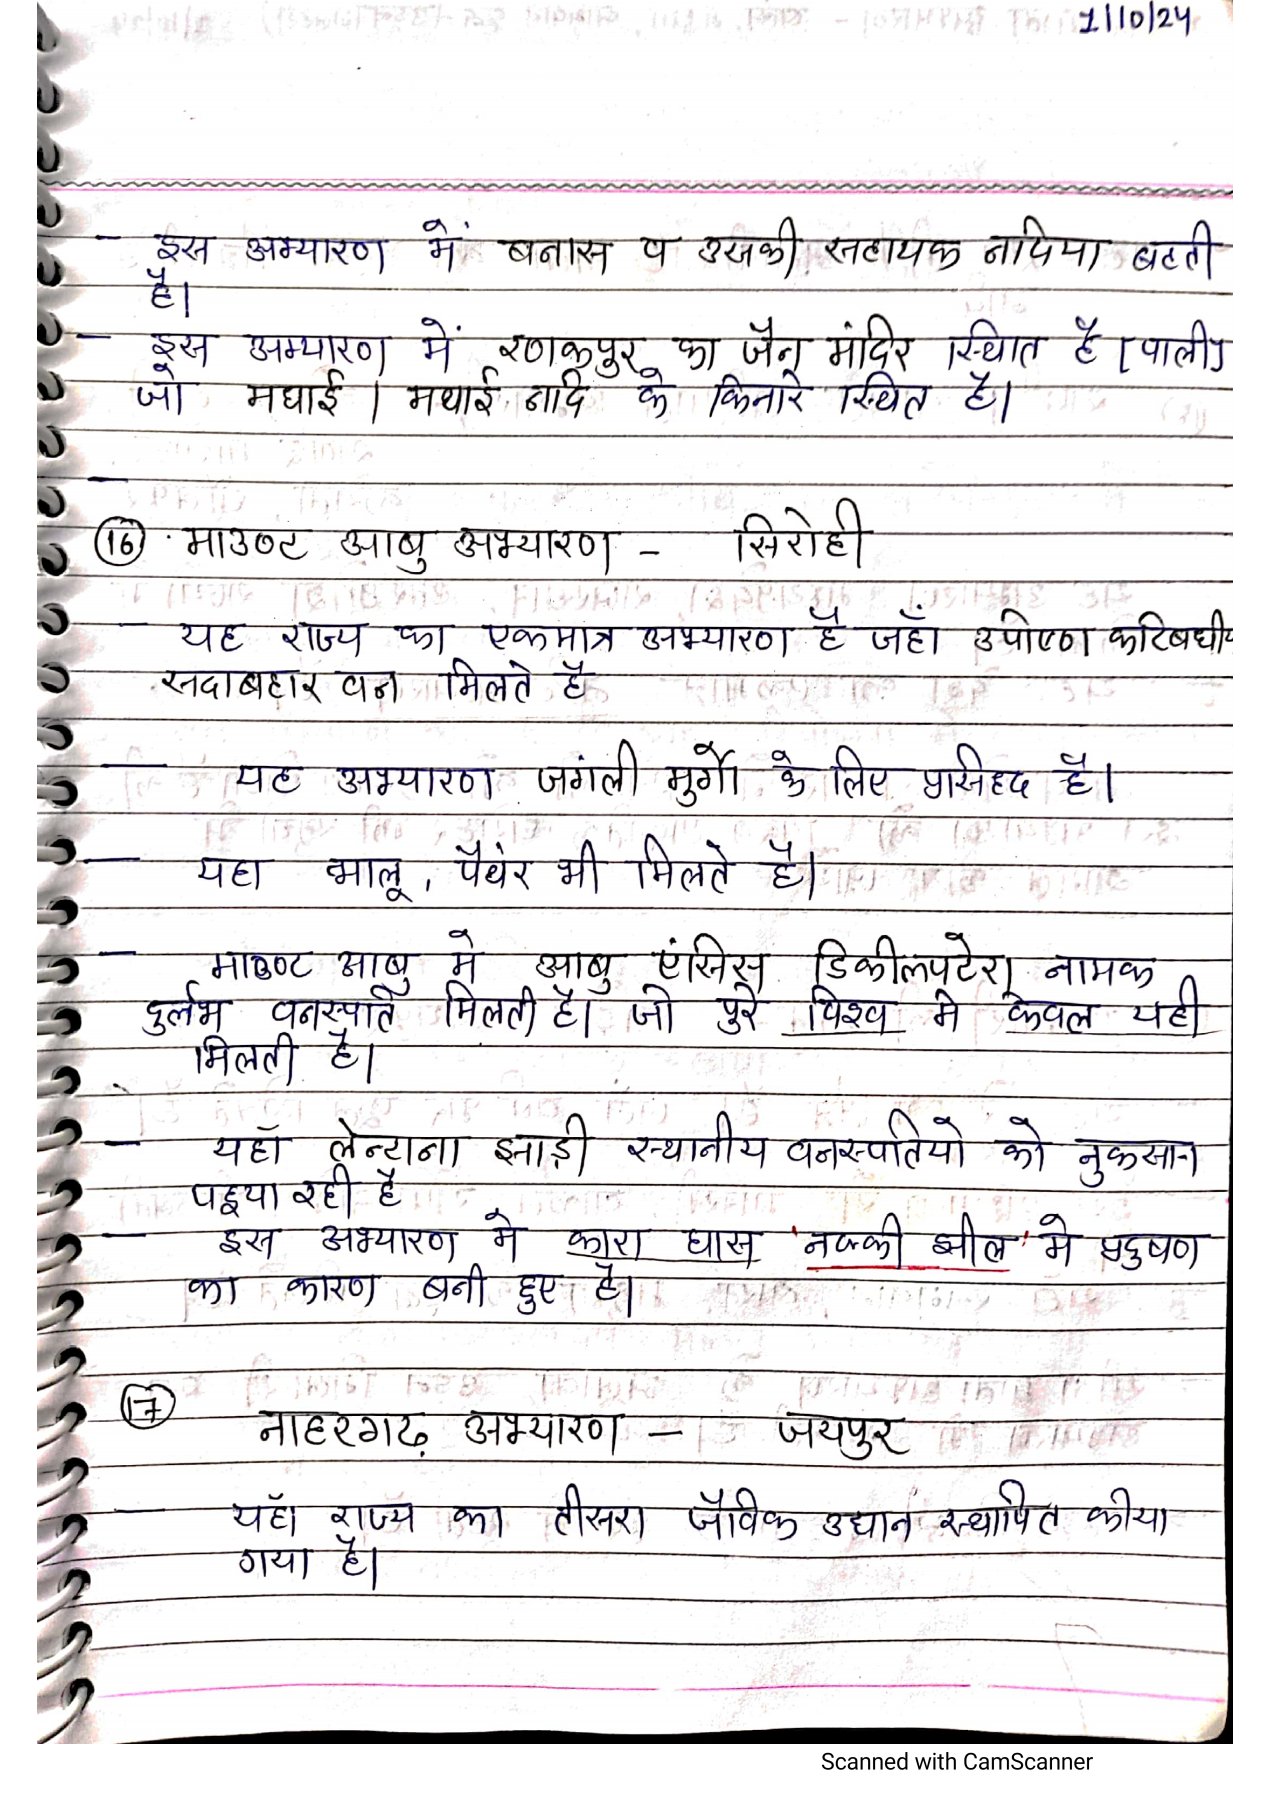 1/10/24
- इस अभ्यारण में बनास व उसकी सहायक नदिया बहती
है।
- इस अभ्यारण में रणकपुर का जैन मंदिर स्थित है [पाली]
जो मघाई / मथाई नदि के किनारे स्थित है।
-
(16) माउण्ट आबु अभ्यारण - सिरोही
- यह राज्य का एकमात्र अभ्यारण है जहाँ उपोष्ण कटिबधीय
सदाबहार वन मिलते है
- यह अभ्यारण जगंली मुर्गो के लिए प्रसिद्द है।
- यहा भालू, पैथेर भी मिलते है।
- माउण्ट आबु मे आबु एंसिस डिकीलपटेरा नामक
दुर्लभ वनस्पति मिलती है। जो पुरे विश्व मे केवल यही
मिलती है।
- यहाँ लेन्टाना झाड़ी स्थानीय वनस्पतियो को नुकसान
पहुचा रही है
- इस अभ्यारण मे कारा घास 'नक्की झील' मे प्रदुषण
का कारण बनी हुए है।
(17) नाहरगढ़ अभ्यारण - जयपुर
- यहाँ राज्य का तीसरा जैविक उद्यान स्थापित कीया
गया है।
Scanned with CamScanner